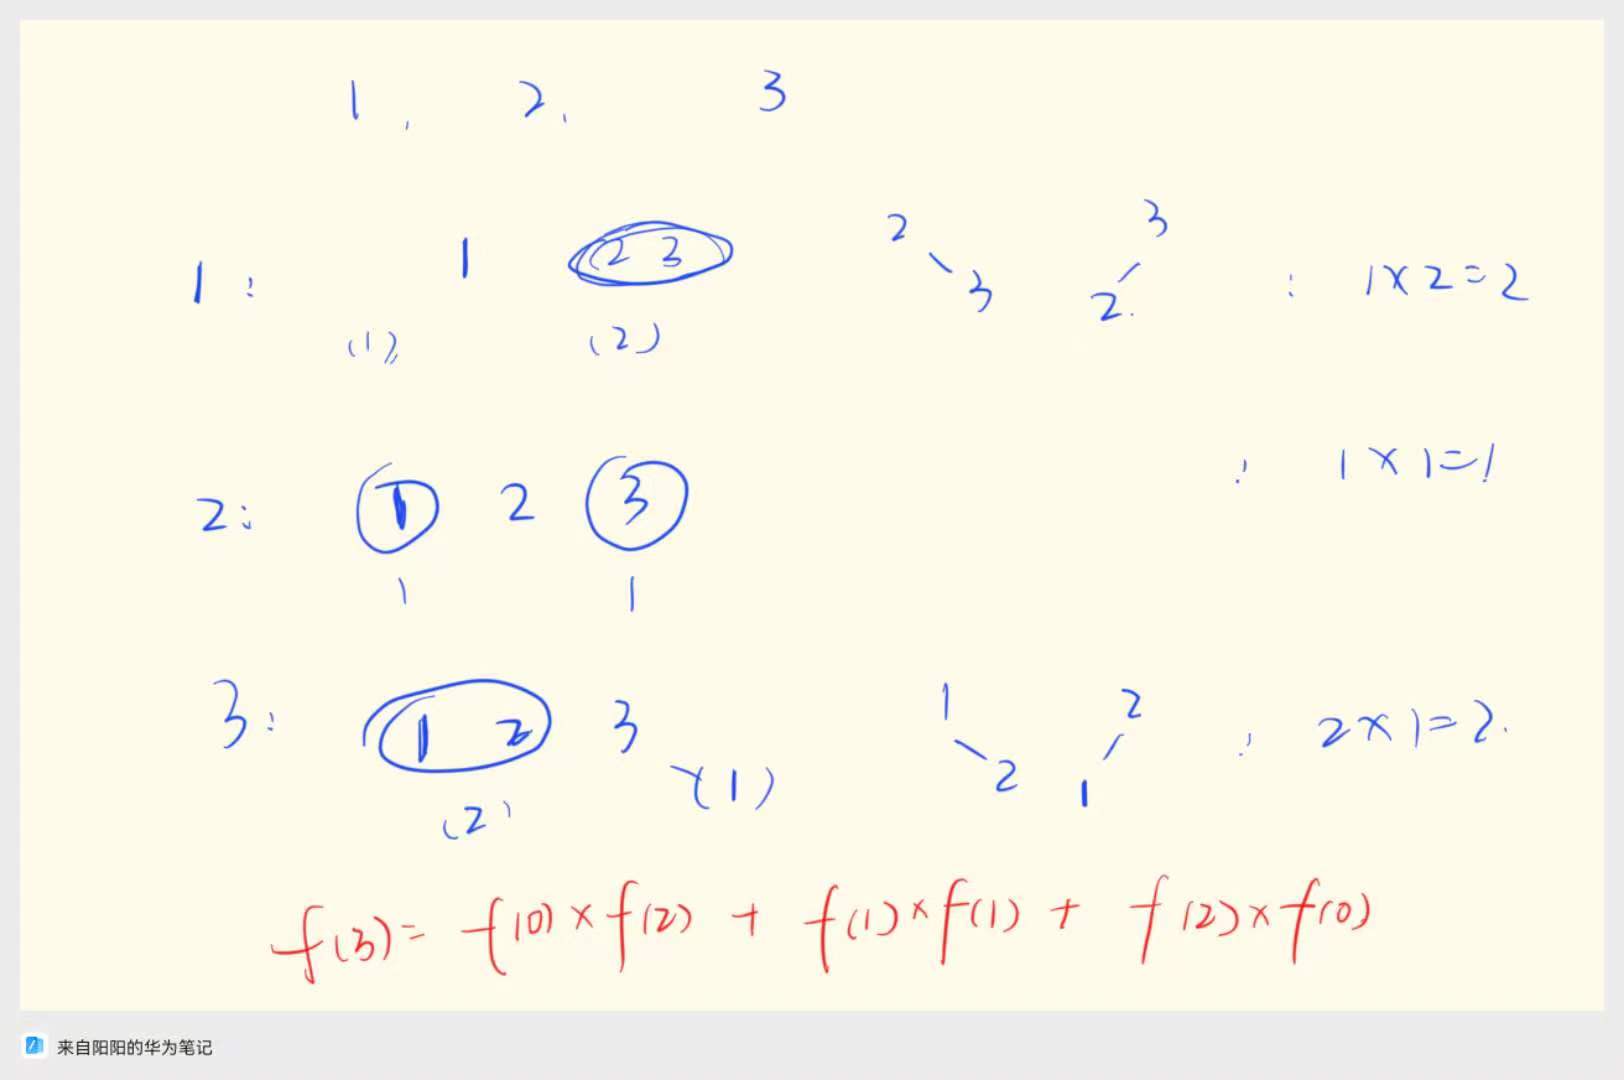 1, 2, 3
1: 1 2 3 2 3 3 2 : 1×2=2
(1) (2)
2: 1 2 3 : 1×1=1
1 1
3: 1 2 3 1 2 2 1 : 2×1=2.
(2) (1)
f(3)= f(0)×f(2) + f(1)×f(1) + f(2)×f(0)
来自阳阳的华为笔记